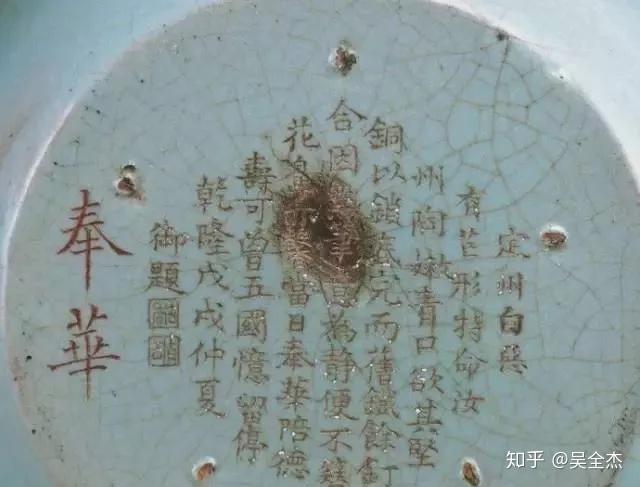 定州白惡
有芒形特命汝
州陶嫩青口欲其堅
銅以鎖底完而舊鐵餘釘
合因為靜便不簪
花當日奉華陪德
壽可曾五國憶留停
乾隆戊戌仲夏
御題
奉華
知乎 @吴全杰